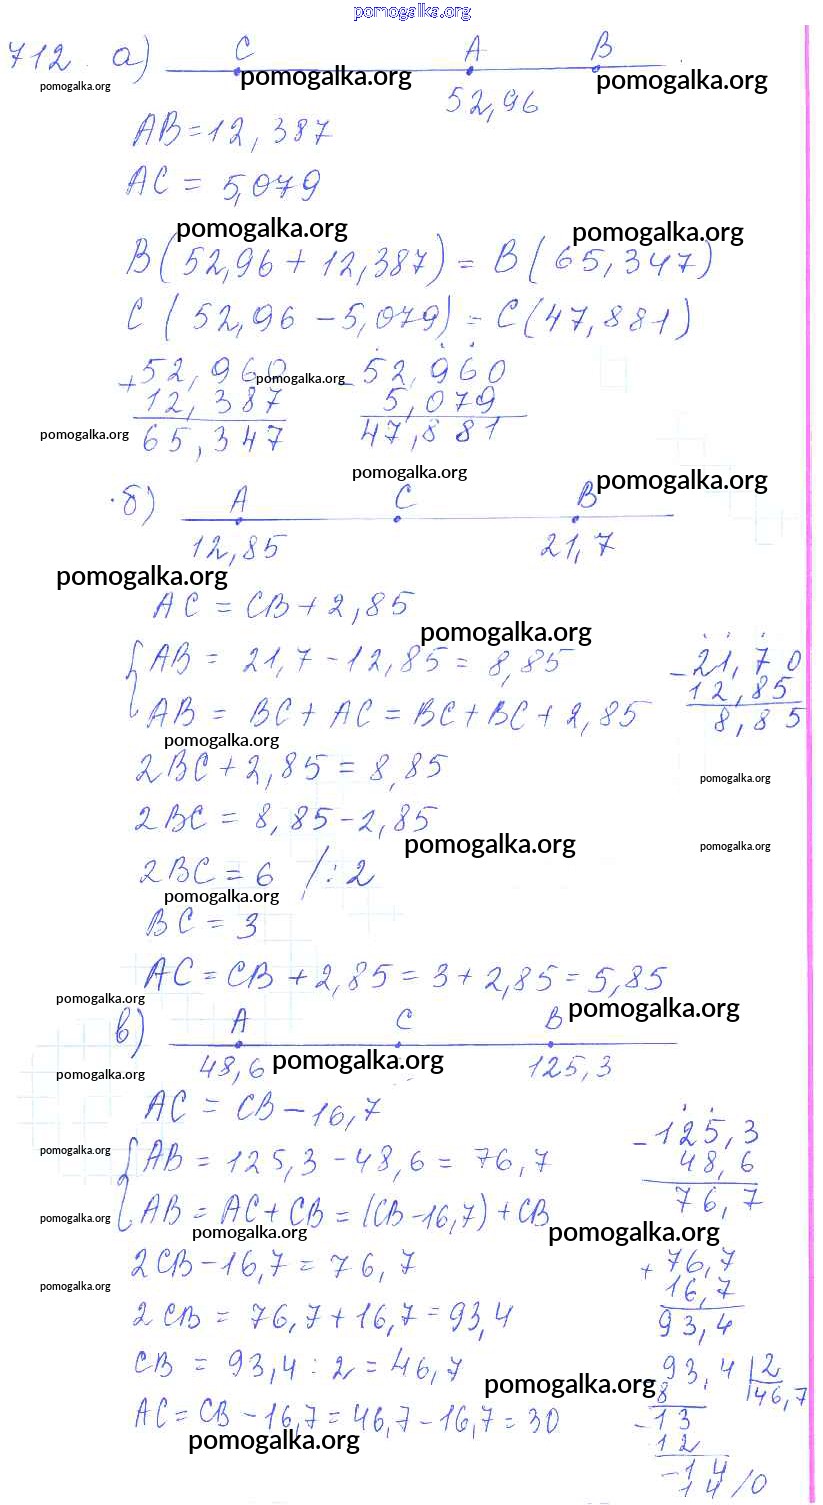 pomogalka.org
712. а) C A B
pomogalka.org pomogalka.org pomogalka.org
52,96
AB = 12,387
AC = 5,079
pomogalka.org pomogalka.org
B(52,96 + 12,387) = B(65,347)
C(52,96 - 5,079) = C(47,881)
+ 52,960 - 52,960
pomogalka.org
12,387 5,079
65,347 47,881
pomogalka.org
pomogalka.org pomogalka.org
б) A C B
12,85 21,7
pomogalka.org
AC = CB + 2,85
pomogalka.org
{ AB = 21,7 - 12,85 = 8,85 - 21,70
12,85
AB = BC + AC = BC + BC + 2,85 8,85
pomogalka.org
2BC + 2,85 = 8,85
pomogalka.org
2BC = 8,85 - 2,85
pomogalka.org pomogalka.org
2BC = 6 /:2
pomogalka.org
BC = 3
AC = CB + 2,85 = 3 + 2,85 = 5,85
pomogalka.org pomogalka.org
в) A C B
48,6 pomogalka.org 125,3
pomogalka.org
AC = CB - 16,7
- 125,3
pomogalka.org
{ AB = 125,3 - 48,6 = 76,7 48,6
76,7
AB = AC + CB = (CB - 16,7) + CB
pomogalka.org pomogalka.org pomogalka.org
2CB - 16,7 = 76,7 + 76,7
pomogalka.org
16,7
2CB = 76,7 + 16,7 = 93,4 93,4
CB = 93,4 : 2 = 46,7 93,4 | 2
pomogalka.org
8 46,7
AC = CB - 16,7 = 46,7 - 16,7 = 30 - 13
pomogalka.org
12
- 14
14 /0